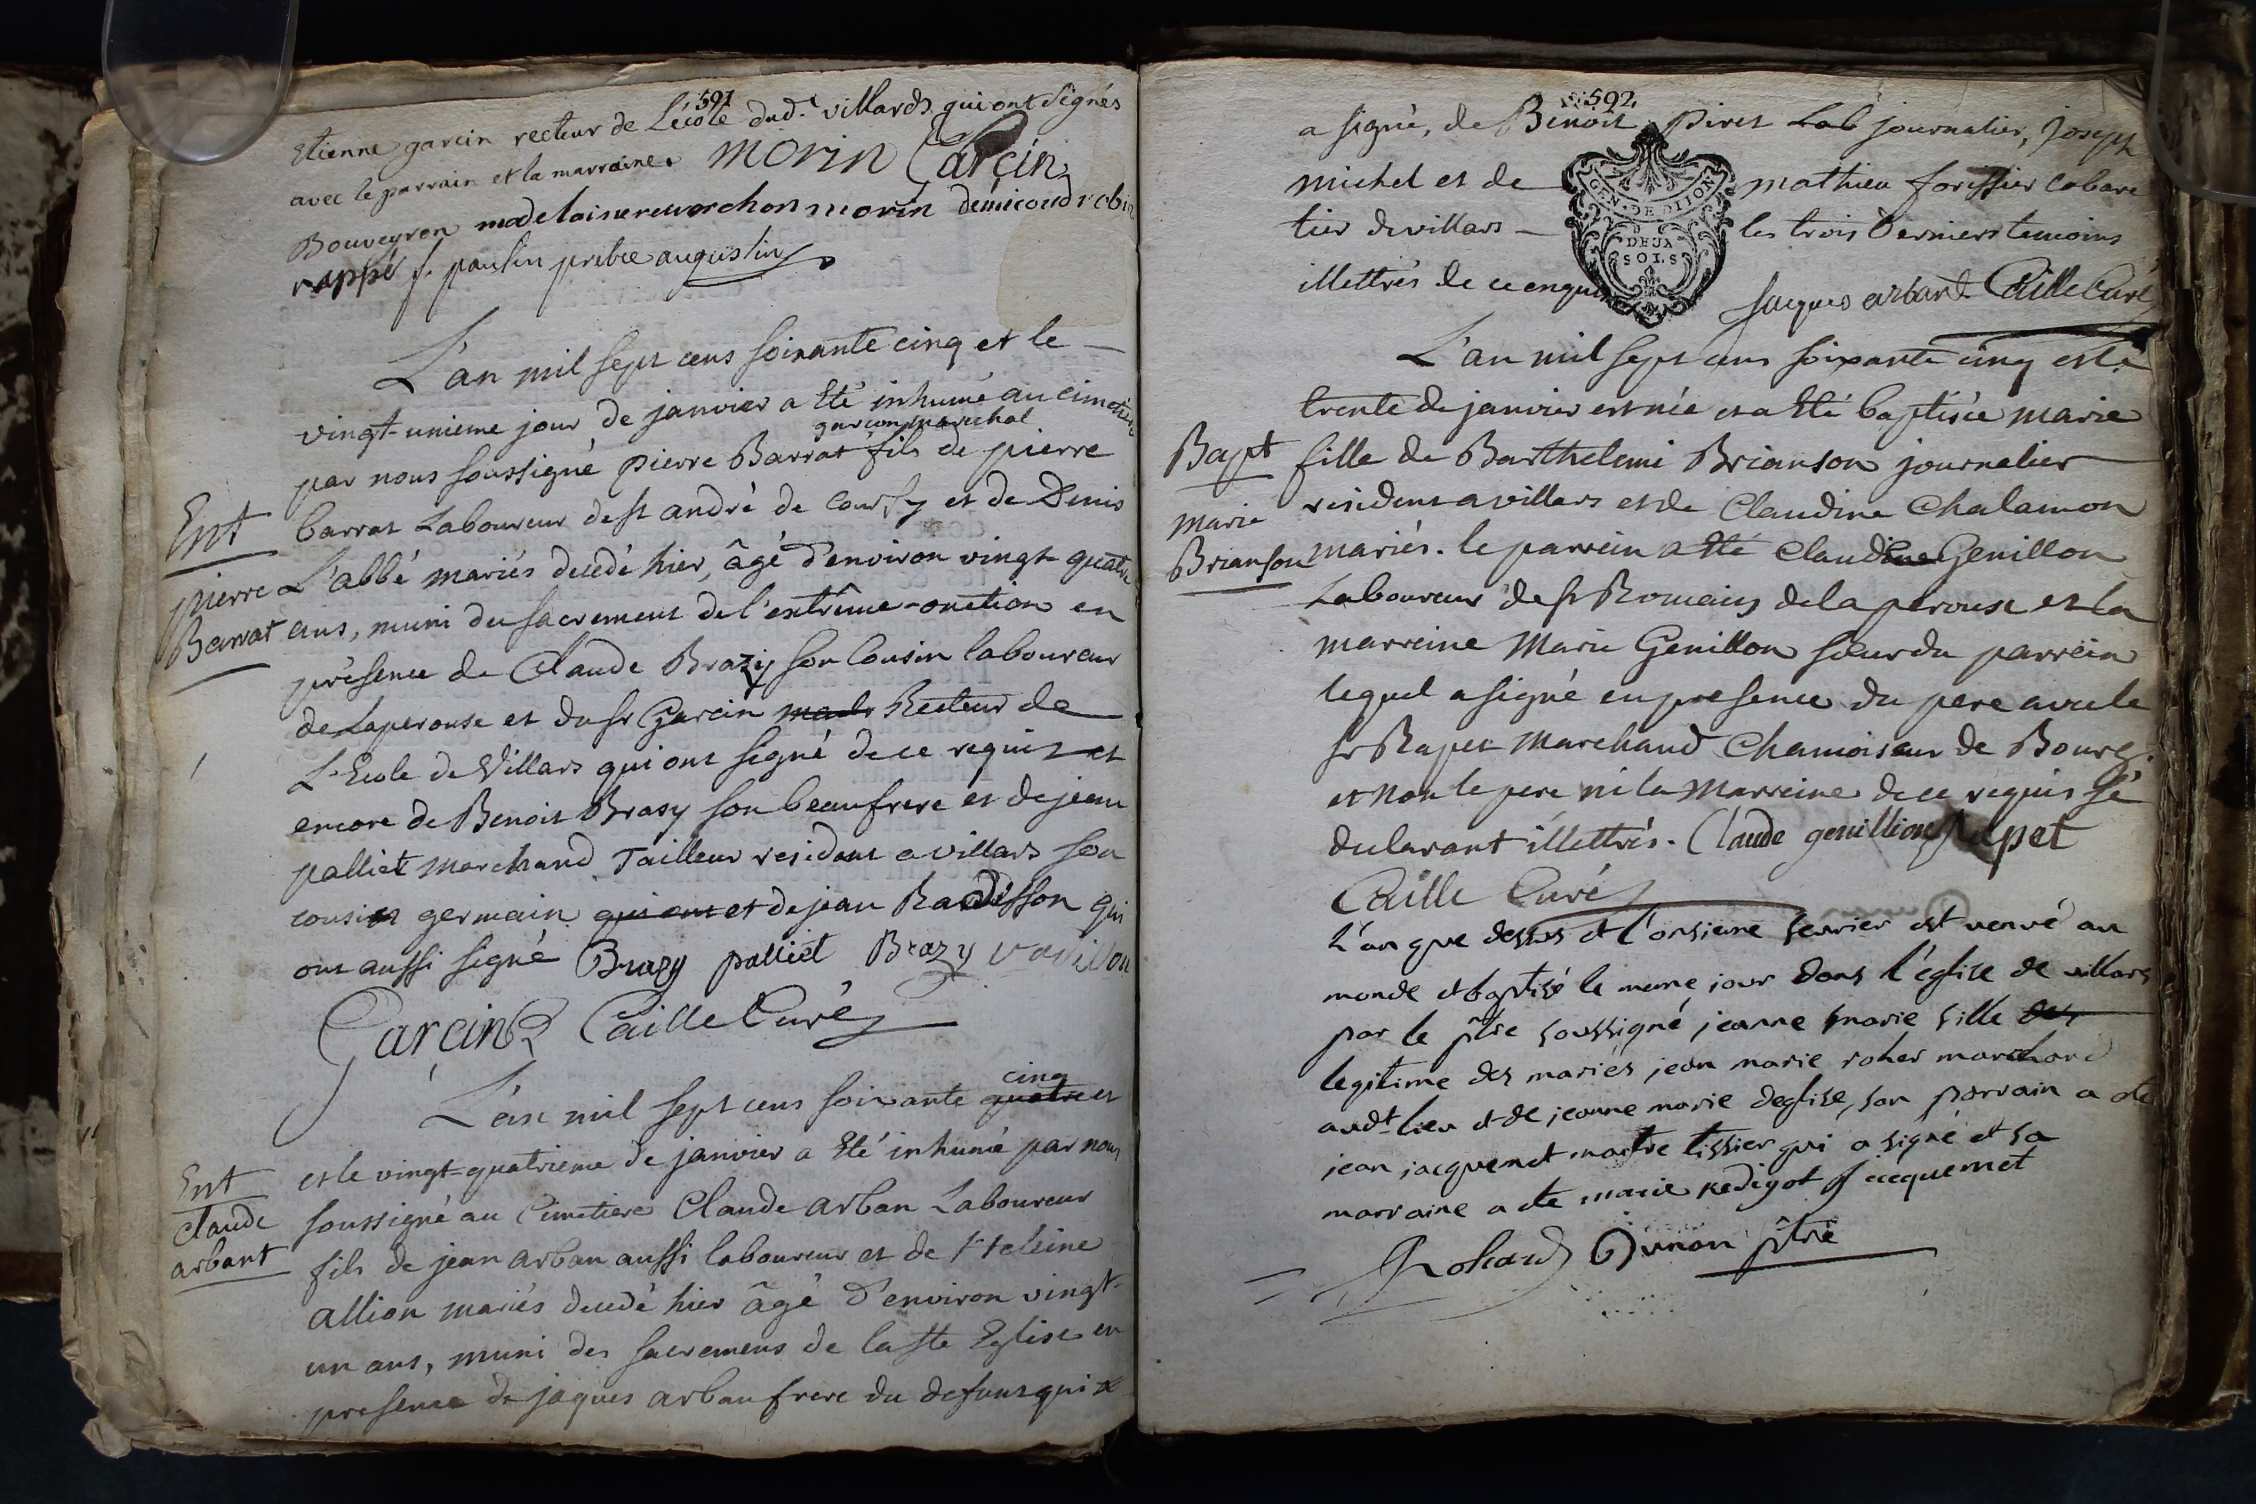 591
Etienne garcin recteur de L'école dud.t villards qui ont signés
avec le parrain et la marraine. morin Garcin
Bouveyron madelaine morin
rappe f. paulin prêbre augustin
L'an mil sept cens soixante cinq et le
vingt-unieme jour de janvier a Eté inhumé au cimetiere
garçon marechal
par nous soussigné pierre Barrat fils de pierre
Ent
barrat Laboureur de st andré de Corsy et de Denis
pierre
L'abbé mariés decedé hier, âgé d'environ vingt-quatre
Barrat
ans, muni du sacrement de l'extrême-onction en
présence de Claude Brazy son Cousin laboureur
de Laperouse et du sr Garcin Recteur de
L'Ecole de Villars qui ont signé de ce requis et
encore de Benoit Brasy son beaufrere et de jean
palliet marchand Tailleur residant a villars son
cousin germain qui ont et de jean Radisson qui
ont aussi signé Brazy palliet Brazy
Garcin Caille Curé
cinq
L'an mil sept cens soixante quatre et
Ent
et le vingt-quatrieme de janvier a Eté inhumé par nous
Claude
soussigné au Cimetiere Claude arban Laboureur
arbant
fils de jean arban aussi laboureur et de heleine
allion mariés decedé hier âgé d'environ vingt-
un ans, muni des sacremens de la ste Eglise en
presence de jaques arban frere du defunt qui
592
a signé, de Benoit Piret Lab journalier, joseph
michel et de mathieu forissier cabare
tier de villars les trois derniers temoins
illettrés de ce enquis
GEN. DE DIJON
DEUX
SOLS
jaques arband Caille Curé
L'an mil sept cens soixante cinq et le
trente de janvier est née et a Eté baptisée marie
Bapt
fille de Barthelemi Brianson journalier
marie
resident a villars et de Claudine Chalamon
Brianson
mariés. le parrein a Eté Claude Genillon
Laboureur de st Romain de la perouse et la
marreine Marie Genillon soeur du parrein
lequel a signé en presence du pere avec le
sr Rapet Marchand Chamoiseur de Bourg.
et non le pere ni la Marreine de ce requis sé
declarant illettrés. Claude genillion Rapet
Caille Curé
L'an que dessus et l'onsieme fevrier est venué au
monde et baptisé le meme jour dans l'église de villars
par le ptre soussigné, jeanne marie fille des
legitime des mariés jean marie roher marchand
audt lieu et de jeanne marie deglise, son parrain a ete
jean jacquemet maitre tissier qui a signé et sa
marraine a ete marie redigot J jacquemet
Rohard ptre